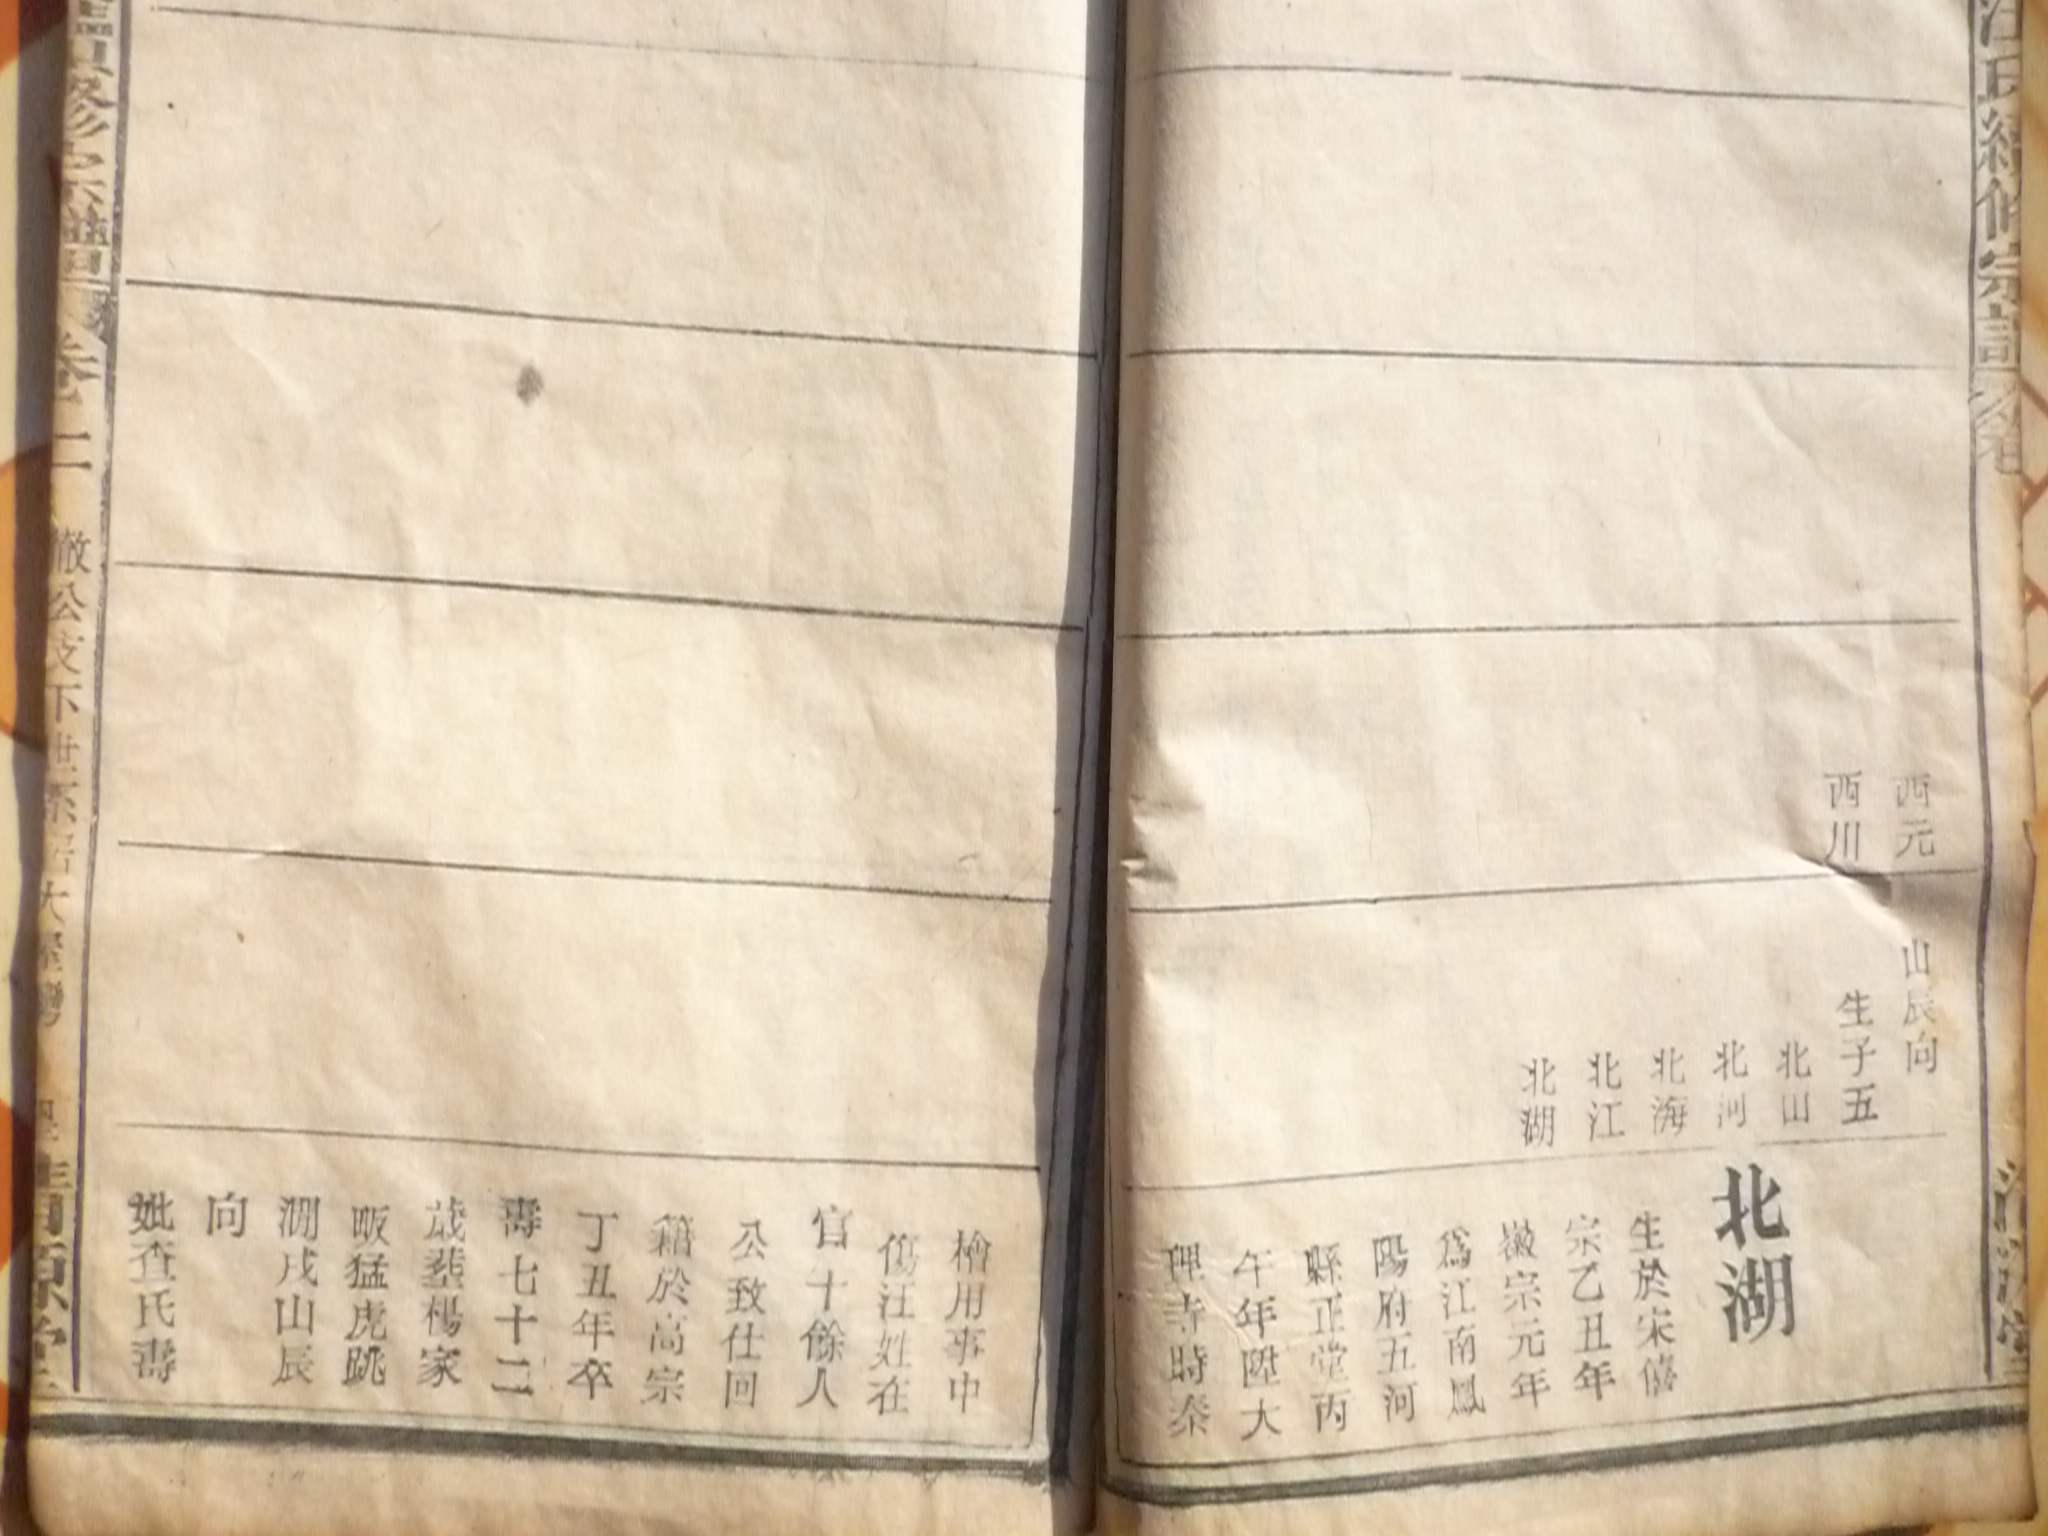 汪氏續修宗譜
西元
西川
山辰向
生子五
北山
北河
北海
北江
北湖
北湖
生於宋僖
宗乙丑年
徽宗元年
爲江南鳳
陽府五河
縣正堂丙
午年陞大
理寺時秦
檜用事中
傷汪姓在
官十餘人
公致仕回
籍於高宗
丁丑年卒
壽七十二
歲塟楊家
畈猛虎跳
澗戌山辰
向
妣查氏壽
卷二
徹公支下世系居大屋灣
清源堂